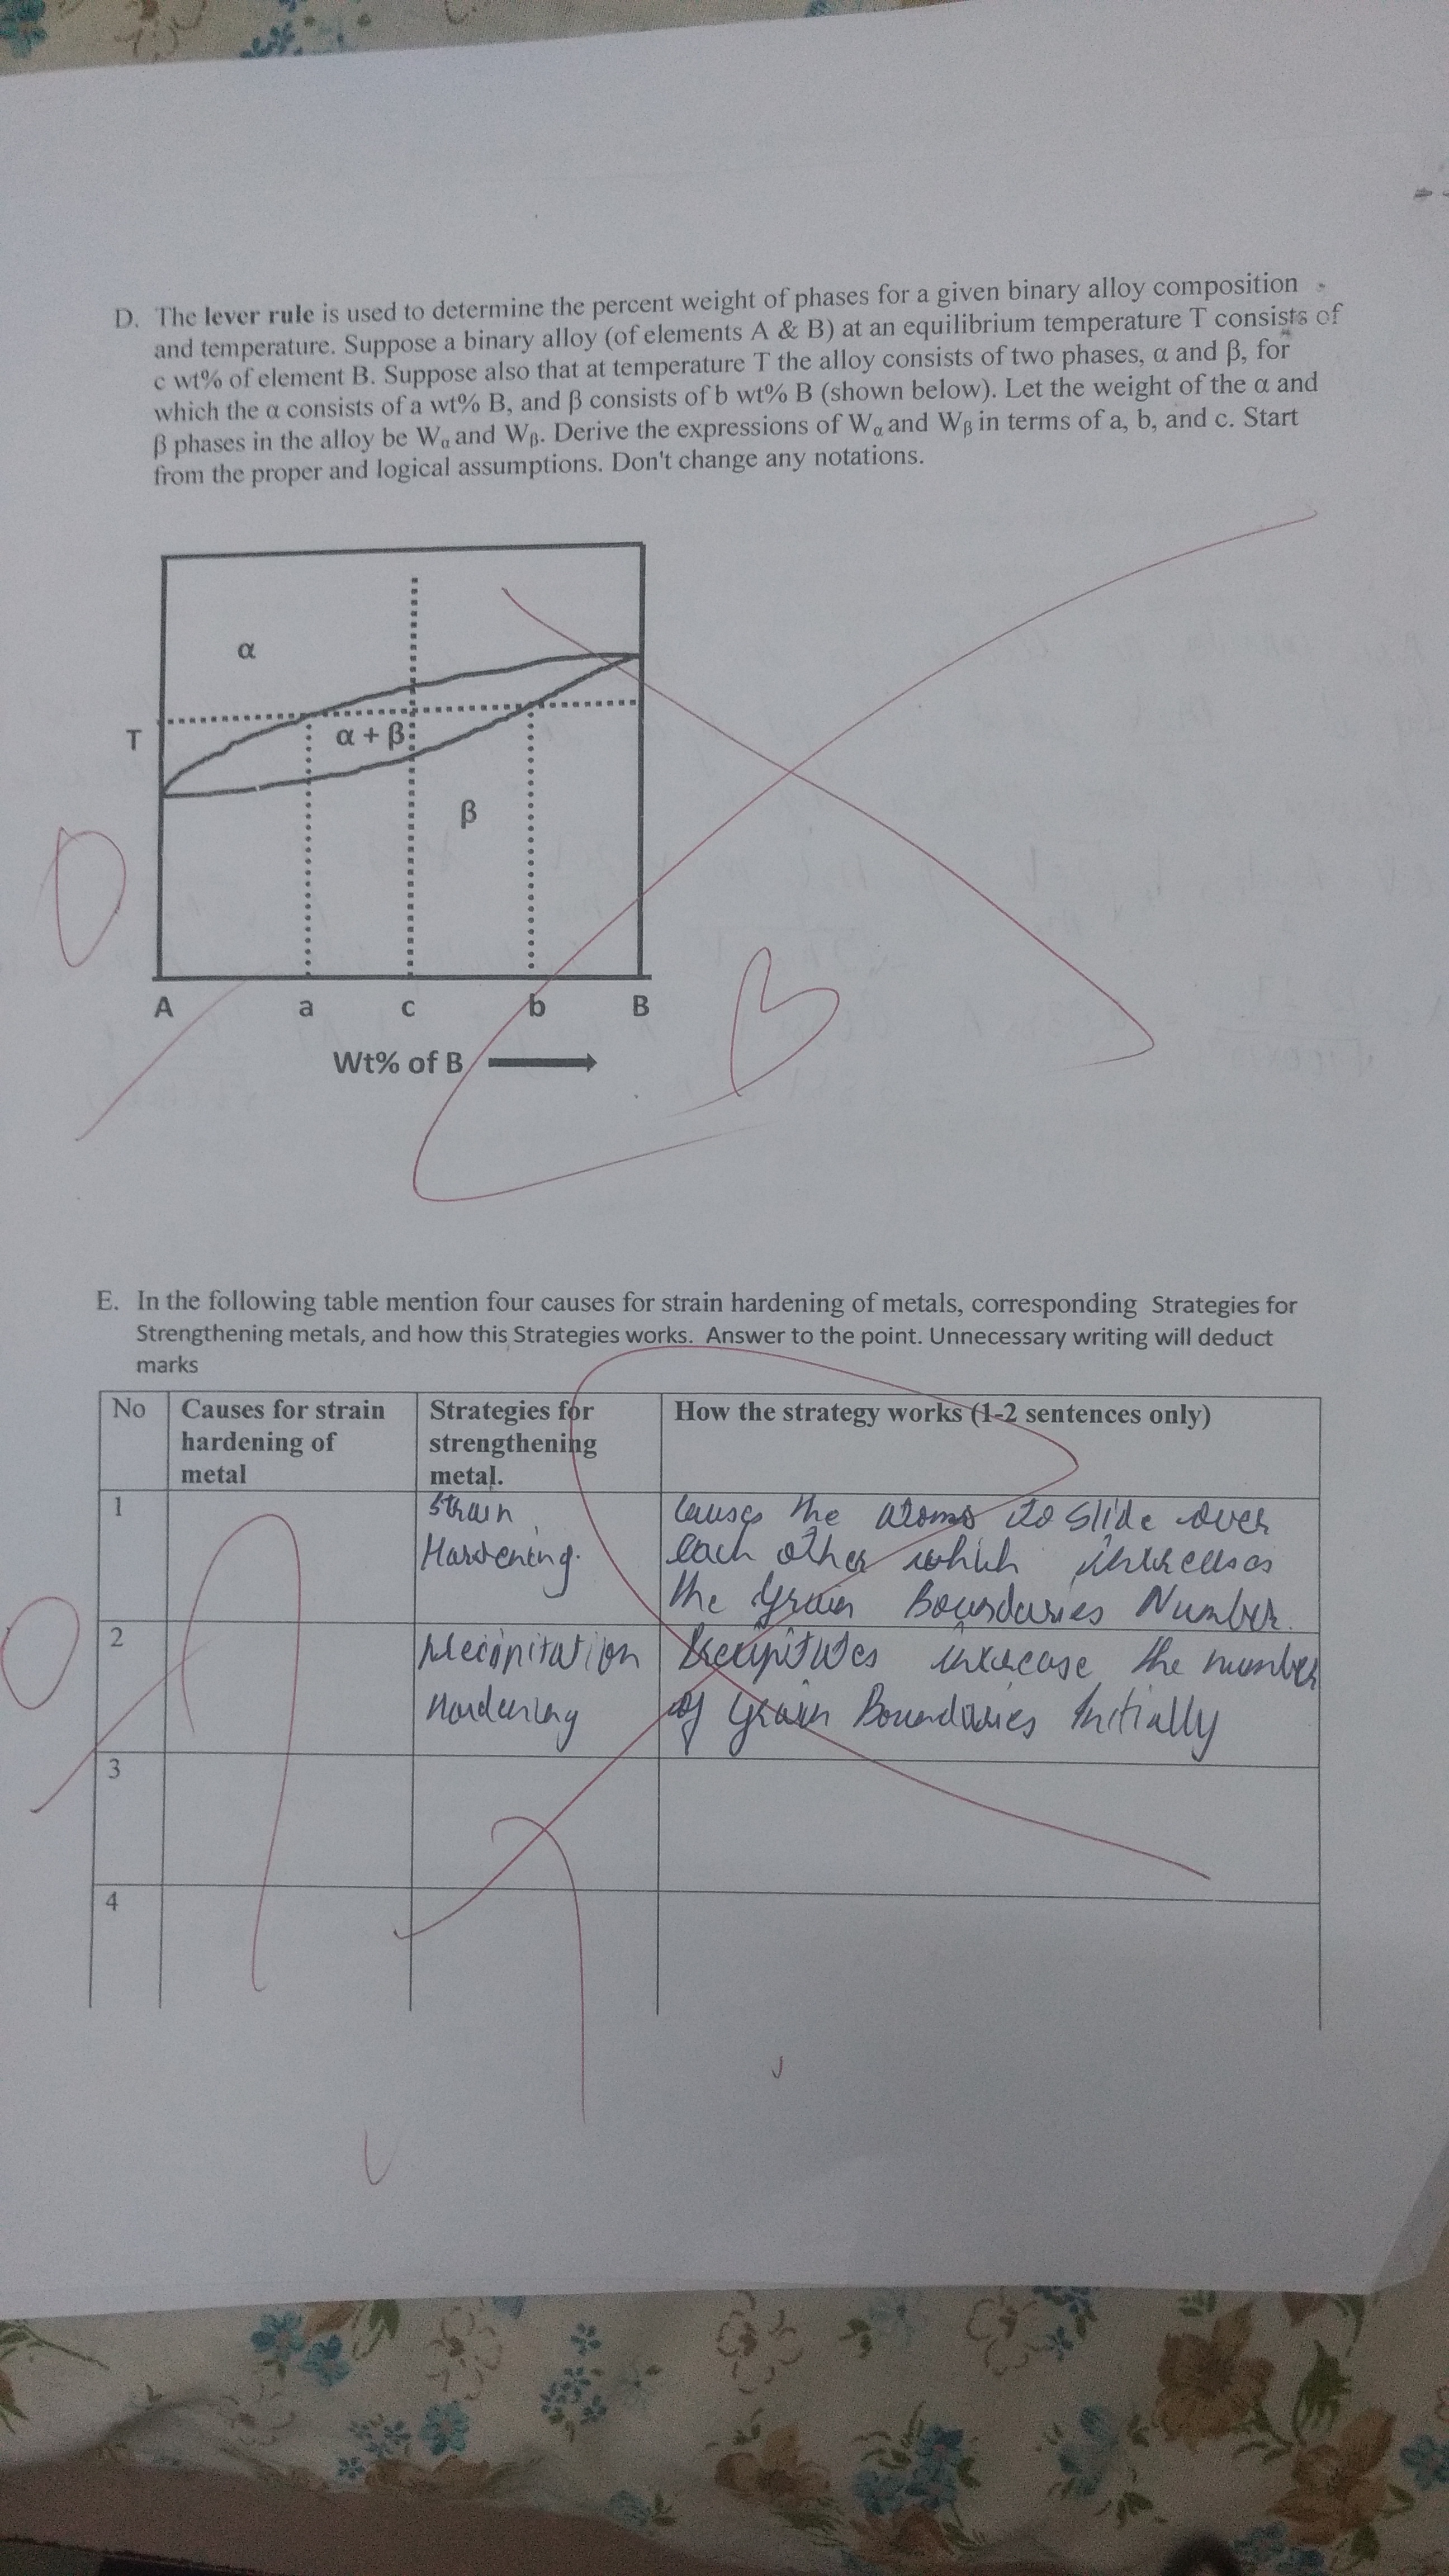 D. The lever rule is used to determine the percent weight of phases for a given binary alloy composition
and temperature. Suppose a binary alloy (of elements A & B) at an equilibrium temperature T consists of
c wt% of element B. Suppose also that at temperature T the alloy consists of two phases, α and β, for
which the α consists of a wt% B, and β consists of b wt% B (shown below). Let the weight of the α and
β phases in the alloy be Wα and Wβ. Derive the expressions of Wα and Wβ in terms of a, b, and c. Start
from the proper and logical assumptions. Don't change any notations.
α
T
α + β
β
0
A a c b B
Wt% of B
E. In the following table mention four causes for strain hardening of metals, corresponding Strategies for
Strengthening metals, and how this Strategies works. Answer to the point. Unnecessary writing will deduct
marks
No
Causes for strain
hardening of
metal
Strategies for
strengthening
metal.
How the strategy works (1-2 sentences only)
1
Strain
Hardening.
Causes the atoms to slide over
each other which increases
the grain Boundaries Number.
0
2
Precipitation
Hardening
Precipitates increase the number
of Grain Boundaries Initially
3
4